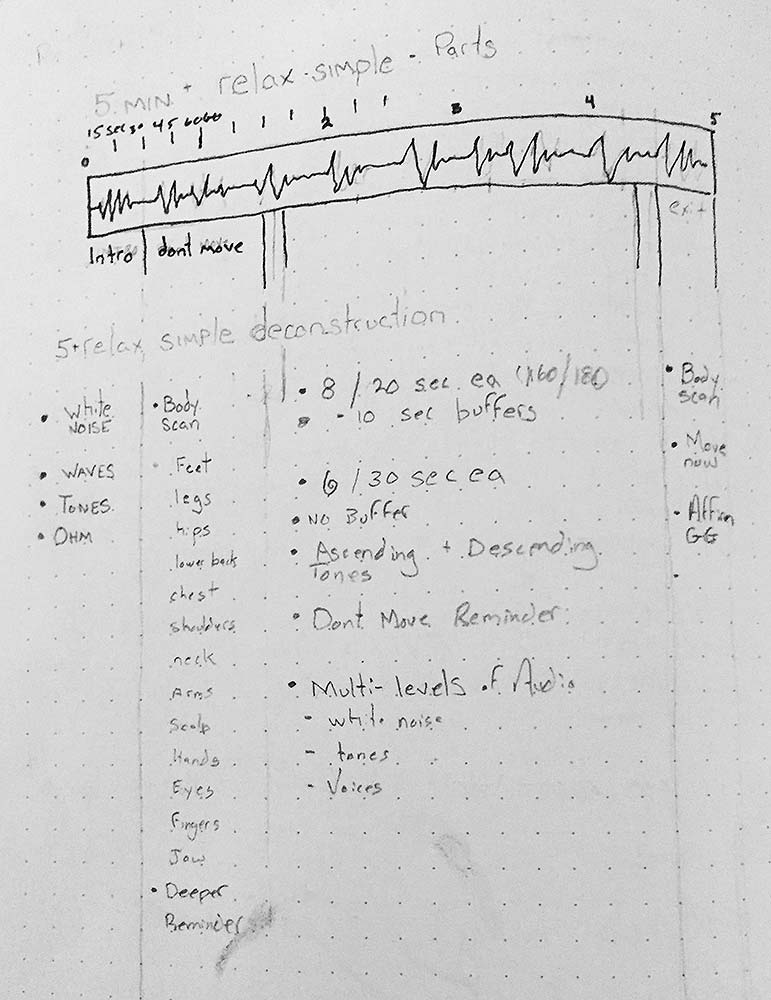 5 MIN + relax - simple - Parts
15 sec 30 45 60
0 2 3 4 5
Intro dont move exit
5+relax, simple deconstruction
• White
NOISE
• WAVES
• TONES
• OHM
• Body
scan
Feet
legs
hips
lower back
chest
shoulders
neck
Arms
Scalp
Hands
Eyes
Fingers
Jaw
• Deeper
Reminder
• 8 / 20 sec ea (160/180)
- 10 sec buffers
• 6 / 30 sec ea
• NO Buffer
• Ascending + Descending
Tones
• Dont Move Reminder
• Multi-levels of Audio
- white noise
- tones
- Voices
• Body
scan
• Move
now
- Affirm
GG